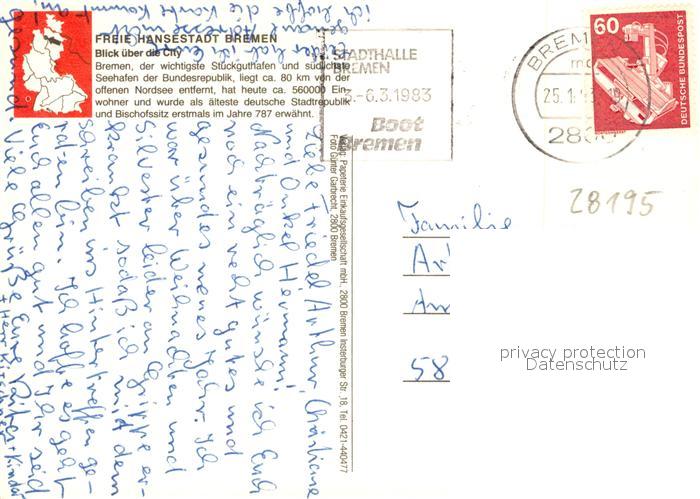 FREIE HANSESTADT BREMEN
Blick über die City
Bremen, der wichtigste Stückguthafen und südlichste
Seehafen der Bundesrepublik, liegt ca. 80 km von der
offenen Nordsee entfernt, hat heute ca. 560000 Ein-
wohner und wurde als älteste deutsche Stadtrepublik
und Bischofssitz erstmals im Jahre 787 erwähnt.
STADTHALLE
BREMEN
-6.3.1983
Boot
Bremen
BREM
25.1.
28
60
DEUTSCHE BUNDESPOST
28195
Verlag: Papeterie Einkaufsgesellschaft mbH., 2800 Bremen Insterburger Str. 18, Tel. 0421-440477
Foto Günter Garbrecht, 2800 Bremen
Liebe Friedel, Arthur, Christiane
und Onkel Hermann!
Nachträglich wünsche ich Euch
noch ein recht gutes und
gesundes neues Jahr. Ich
war über Weihnachten und
Silvester leider an Grippe er-
krankt sodaß ich mit dem
schreiben ins Hintertreffen ge-
raten bin. Ich hoffe es geht
Euch allen gut und Ihr seid
gesund.
Viele Grüße Eure
+ Kinder
leider hab ich Eure
genaue Adresse nicht
ich hoffe die Karte kommt an.
Familie
58
privacy protection
Datenschutz